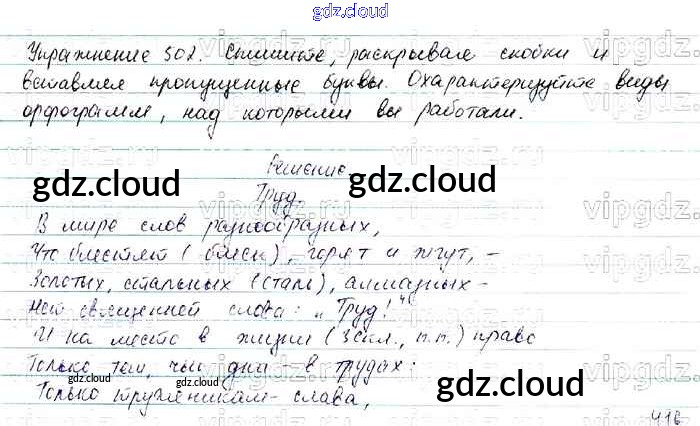 gdz.cloud
Упражнение 502. Спишите, раскрывая скобки и
вставляя пропущенные буквы. Охарактеризуйте виды
орфограмм, над которыми вы работали.
Решение.
gdz.cloud gdz.cloud
Труд.
В мире слов разнообразных,
Что блестят (блеск), горят и жгут, –
Золотых, стальных (сталь), алмазных –
Нет священней слова: „Труд!“
И на место в жизни (3 скл., п.п.) право
Только тем, чьи дни – в трудах:
gdz.cloud gdz.cloud
Только труженикам – слава,
416
gdz.cloud
vipgdz.ru